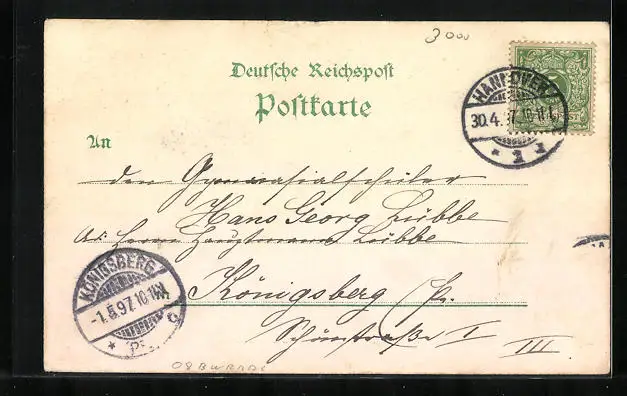 3000
Deutsche Reichspost
Postkarte
HANNOVER
30.4.97.10-11
An
den Gymnasialschüler
Hans Georg Lübbe
Ad. Herrn Hauptmann Lübbe
KÖNIGSBERG
-1.5.97.10-11
Pr.
c
Königsberg Pr.
Schönstraße I
III